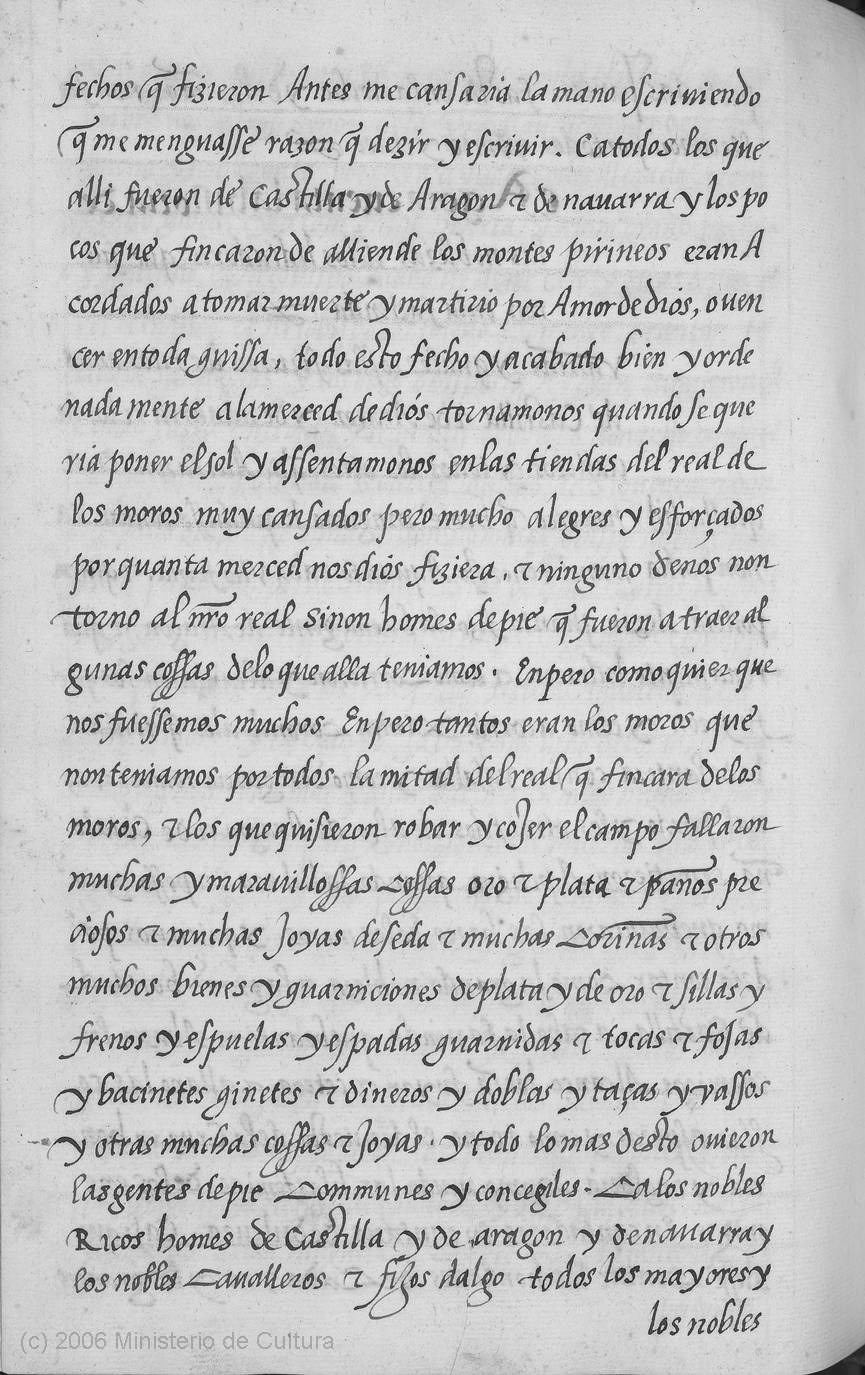 fechos q̃ fizieron Antes me cansaria la mano escriviendo
q̃ me menguasse razon q̃ dezir y escrivir. Ca todos los que
alli fueron de Castilla y de Aragon ⁊ de navarra y los po
cos que fincaron de alliende los montes pirineos eran A
cordados a tomar muerte y martirio por Amor de diós, o ven
cer en toda guissa, todo esto fecho y acabado bien y orde
nada mente a la merced de diós tornamonos quando se que
ria poner el sol y assentamonos en las tiendas del real de
los moros muy cansados pero mucho alegres y esforçados
por quanta merced nos diós fiziera, ⁊ ninguno de nos non
torno al nr̃o real sinon homes de pie q̃ fueron a traer al
gunas cossas de lo que alla teniamos. Enpero como quier que
nos fuessemos muchos Enpero tantos eran los moros que
non teniamos por todos la mitad del real q̃ fincara de los
moros, ⁊ los que quisieron robar y cojer el campo fallaron
muchas y maravillossas Cossas oro ⁊ plata ⁊ paños pre
ciosos ⁊ muchas Joyas de seda ⁊ muchas Corinas ⁊ otros
muchos bienes y guarniciones de plata y de oro ⁊ sillas y
frenos y espuelas y espadas guarnidas ⁊ tocas ⁊ fojas
y bacinetes ginetes ⁊ dineros y doblas y taças y vassos
y otras muchas cossas ⁊ Joyas. y todo lo mas desto ovieron
las gentes de pie Communes y concegiles. Ca los nobles
Ricos homes de Castilla y de aragon y de navarra y
los nobles Cavalleros ⁊ fijos dalgo todos los mayores y
los nobles
(c) 2006 Ministerio de Cultura